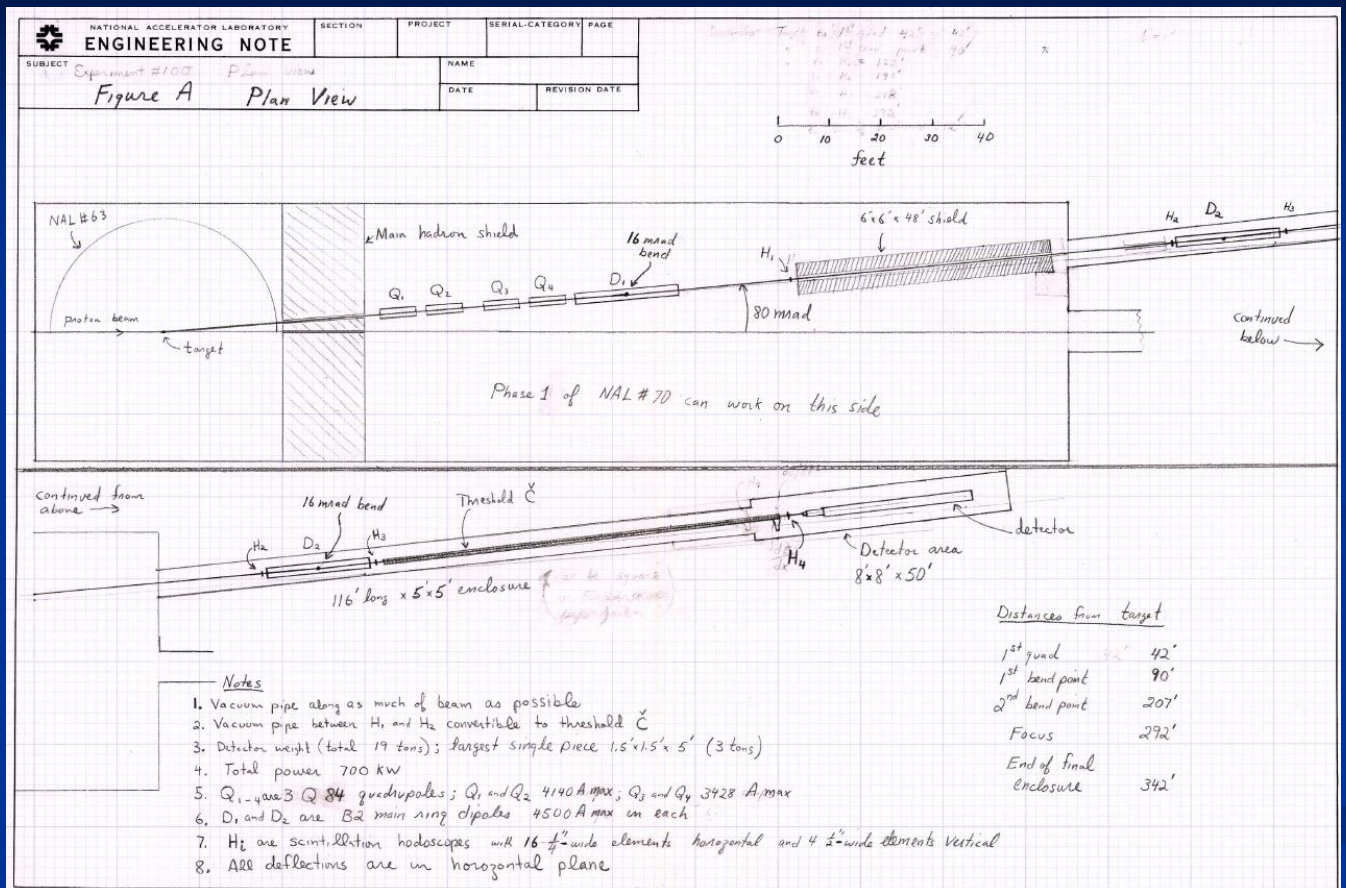 NATIONAL ACCELERATOR LABORATORY
ENGINEERING NOTE
SECTION
PROJECT
SERIAL-CATEGORY
PAGE
SUBJECT
Experiment #100 Plan view
Figure A Plan View
NAME
DATE
REVISION DATE
0 10 20 30 40
feet
NAL #63
Main hadron shield
16 mrad
bend
6'x6'x 48' shield
H2
D2
H3
H1
Q1
Q2
Q3
Q4
D1
proton beam
target
80 mrad
continued
below →
Phase 1 of NAL #70 can work on this side
continued from
above →
16 mrad bend
Threshold Č
H2
D2
H3
H4
detector
Detector area
8'x8'x50'
116' long x 5'x5' enclosure
Distances from target
1st quad 42'
1st bend point 90'
2nd bend point 207'
Focus 292'
End of final
enclosure 342'
Notes
1. Vacuum pipe along as much of beam as possible
2. Vacuum pipe between H1 and H2 convertible to threshold Č
3. Detector weight (total 19 tons); largest single piece 1.5'x1.5'x 5' (3 tons)
4. Total power 700 KW
5. Q1-4 are 3 Q 84 quadrupoles; Q1 and Q2 4140 A max; Q3 and Q4 3428 A max
6. D1 and D2 are B2 main ring dipoles 4500 A max in each
7. Hi are scintillation hodoscopes with 16 1/4"-wide elements horozontal and 4 1/2"-wide elements vertical
8. All deflections are in horozontal plane